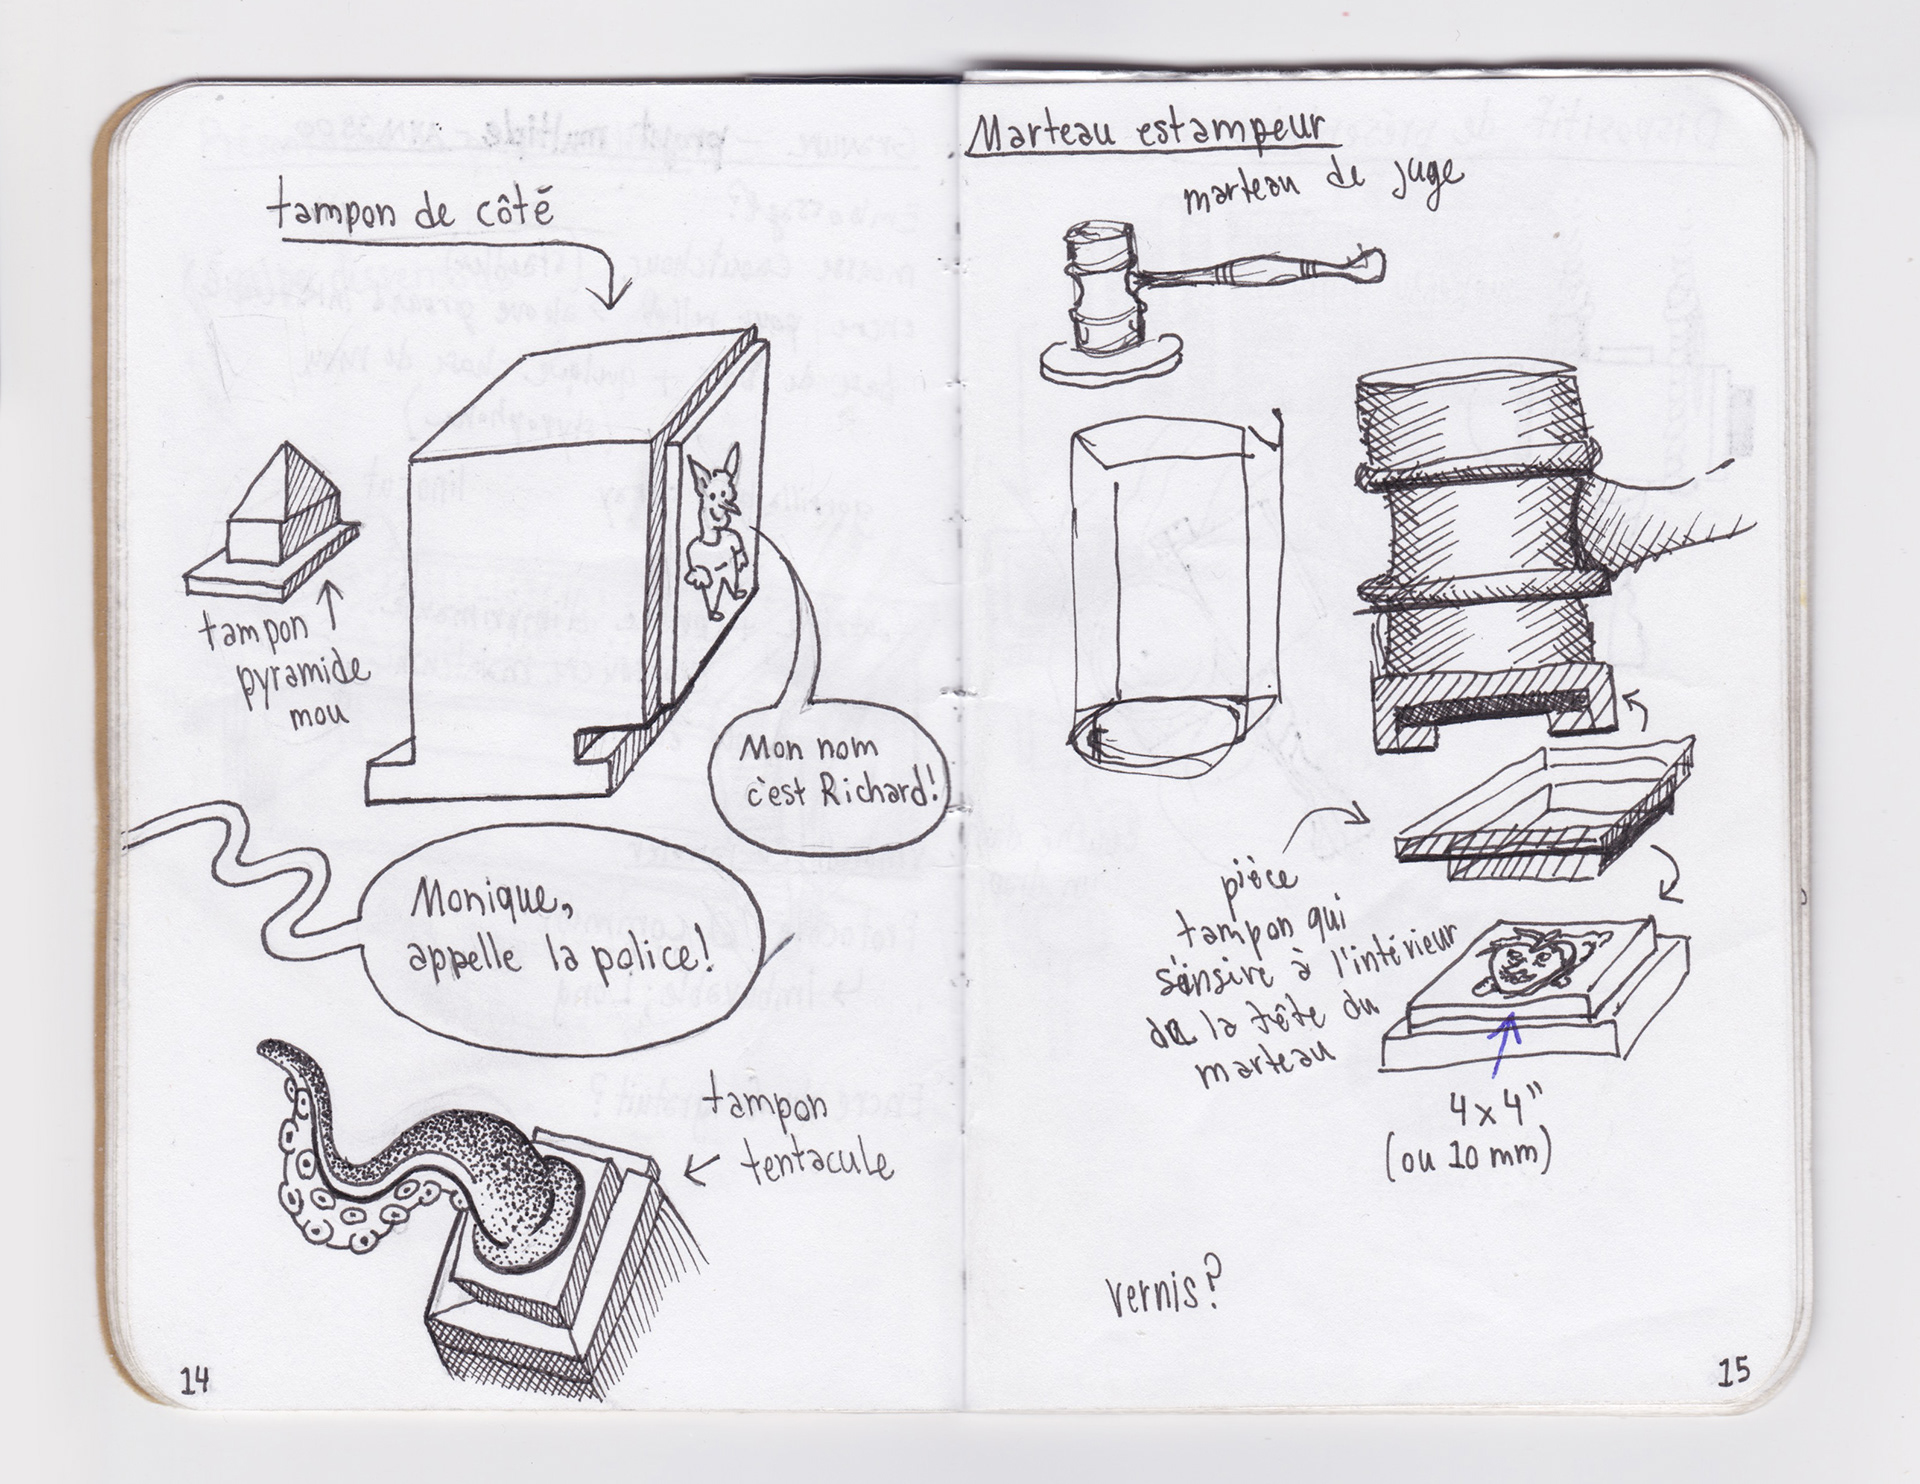 tampon de côté
tampon
pyramide
mou
Mon nom
c'est Richard!
Monique,
appelle la police!
tampon
tentacule
14
Marteau estampeur
marteau de juge
pièce
tampon qui
s'insire à l'intérieur
de la tête du
marteau
4x4"
(ou 10 mm)
vernis?
15